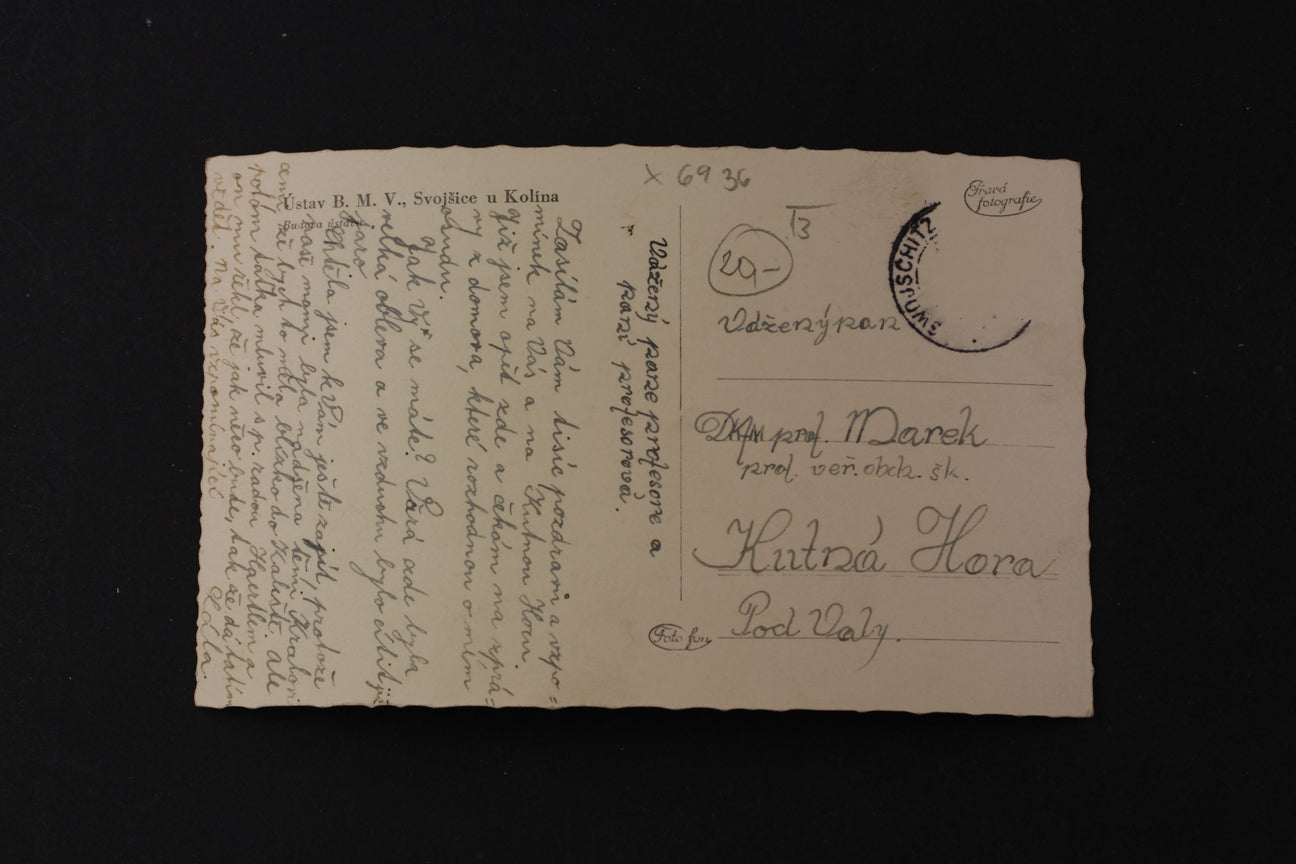 Ústav B. M. V., Svojšice u Kolína
Budova ústavu
Vážený pane profesore a
paní profesorová.
Zasílám Vám tisíc pozdravů a vzpo=
mínek na Vás a na Kutnou Horu.
Již jsem opět zde a čekám na zprá=
vy z domova, které rozhodnou o mém
osudu.
Jak Vy se máte? Včera zde byla
velká obleva a ve vzduchu bylo cítit již
jaro.
Chtěla jsem k Vám ještě zajít, protože
naše mami byla nadšena těmi
že bych to měla blízko do ale
potom tatka mluvil s p. radou Haertlem a
on mu řekl, že jak něco bude, tak že dá tatím
vědět. na Vás vzpomínající
X 6936
B
20,-
Pravá
fotografie
SWOJSCHITZ
Vážený pan
prof. Marek
prof. veř. obch. šk.
Kutná Hora
Pod Valy.
Foto fon